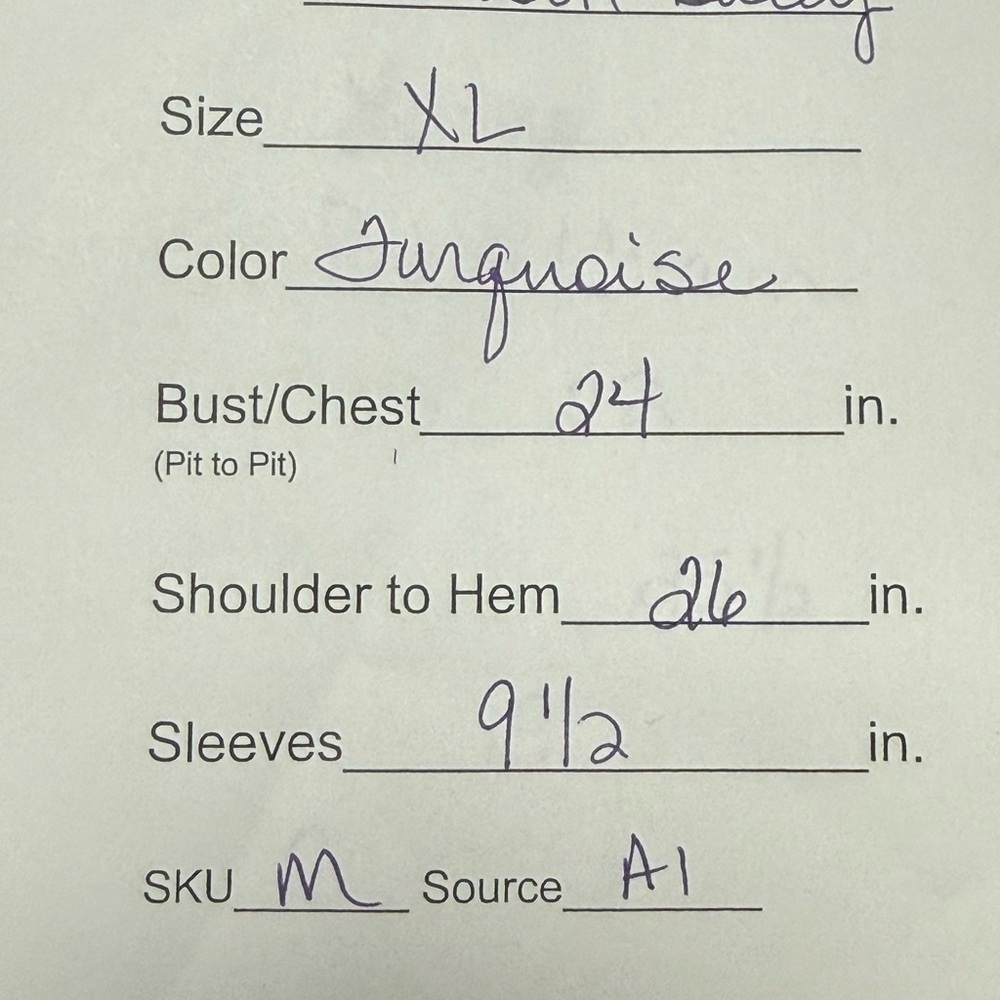 Size XL
Color Turquoise
Bust/Chest 24 in.
(Pit to Pit)
Shoulder to Hem 26 in.
Sleeves 9 1/2 in.
SKU M Source A1